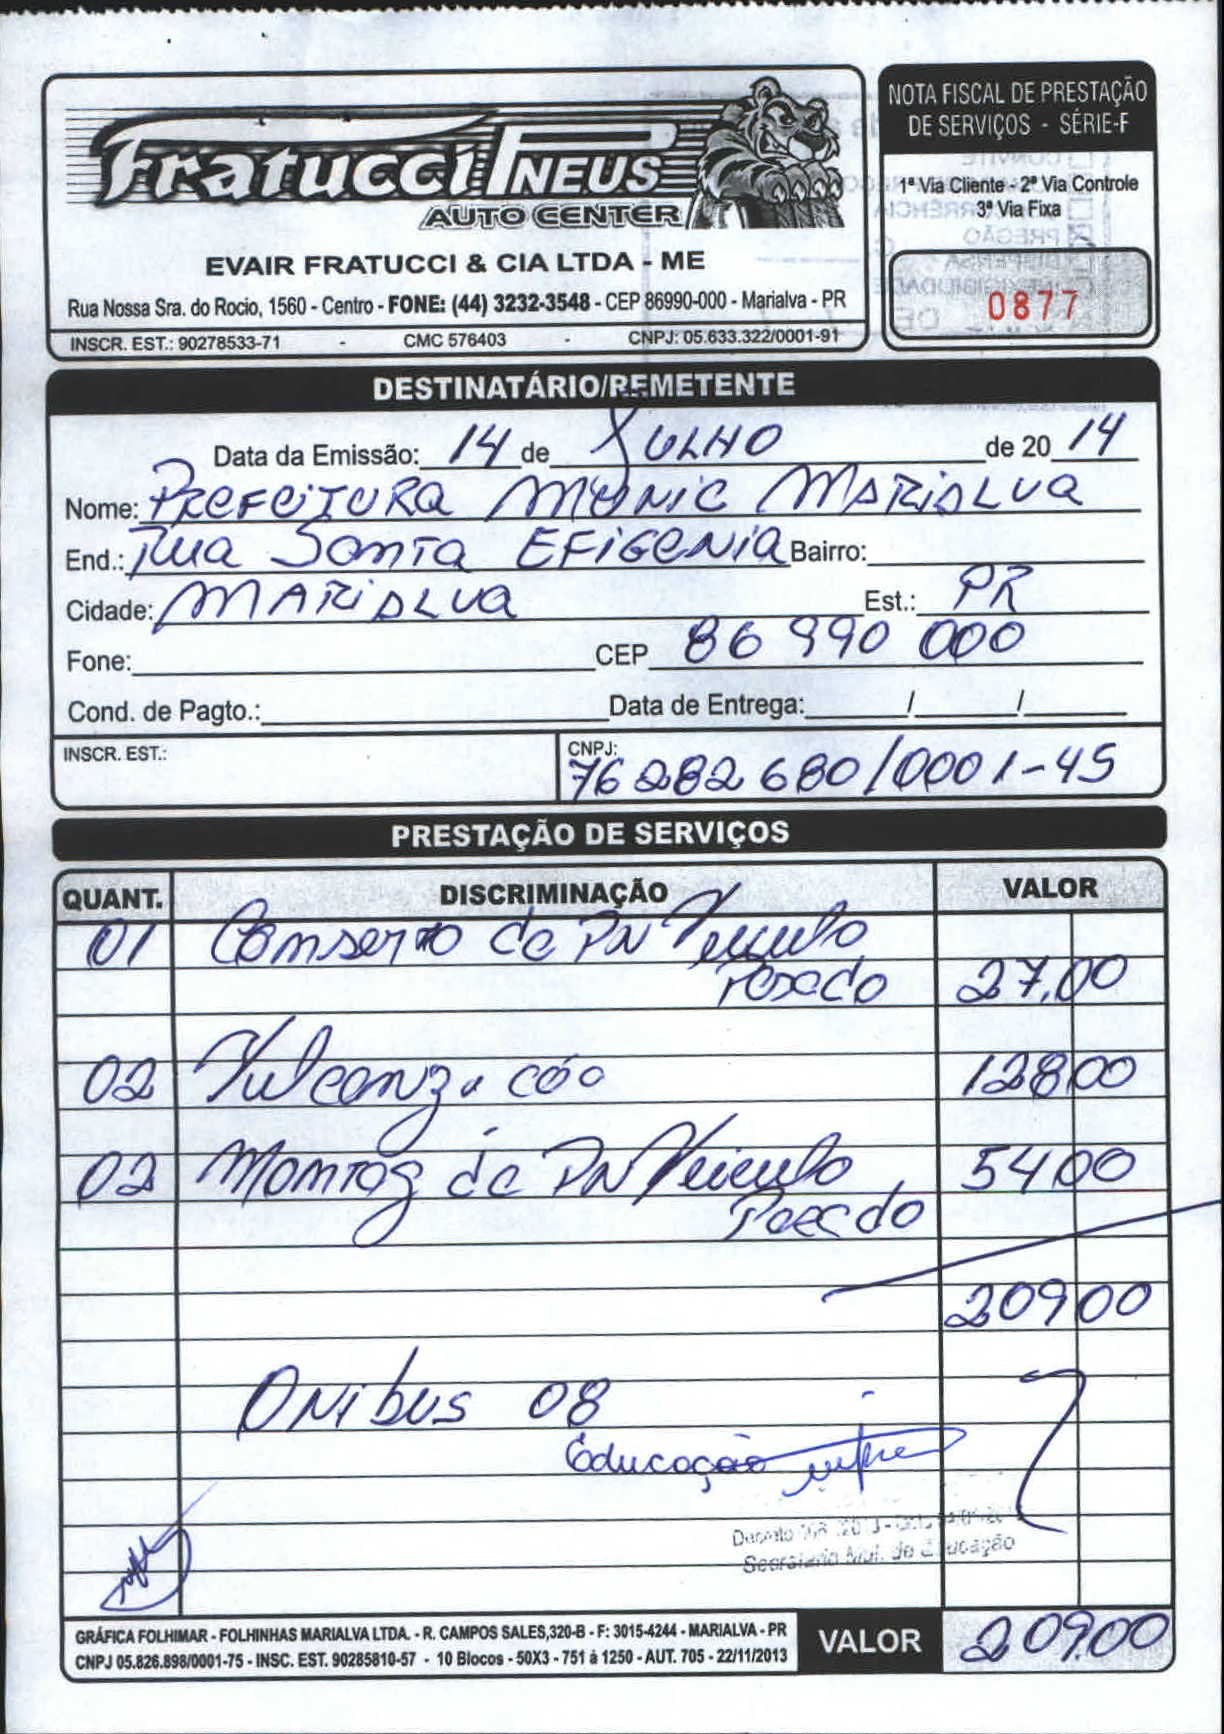 Fratucci PNEUS
AUTO CENTER
EVAIR FRATUCCI & CIA LTDA - ME
Rua Nossa Sra. do Rocio, 1560 - Centro - FONE: (44) 3232-3548 - CEP 86990-000 - Marialva - PR
INSCR. EST.: 90278533-71 - CMC 576403 - CNPJ: 05.633.322/0001-91
NOTA FISCAL DE PRESTAÇÃO
DE SERVIÇOS - SÉRIE-F
1ª Via Cliente - 2ª Via Controle
3ª Via Fixa
0877
DESTINATÁRIO/REMETENTE
Data da Emissão: 14 de JULHO de 20 14
Nome: PREFEITURA MUNIC MARIALVA
End.: Rua Santa EFIGENIA Bairro:
Cidade: MARIALVA Est.: PR
Fone: CEP 86 990 000
Cond. de Pagto.: Data de Entrega: / /
INSCR. EST.: CNPJ: 76 282 680/0001-45
PRESTAÇÃO DE SERVIÇOS
QUANT. DISCRIMINAÇÃO VALOR
01 Conserto de PN Veiculo
Pesado 27,00
02 Vulcanização 128,00
02 Montag de PN Veiculo 54,00
Pesado
209,00
ONibus 08
Educação
Secretaria Mul. de Educação
GRÁFICA FOLHIMAR - FOLHINHAS MARIALVA LTDA. - R. CAMPOS SALES,320-B - F: 3015-4244 - MARIALVA - PR
CNPJ 05.826.898/0001-75 - INSC. EST. 90285810-57 - 10 Blocos - 50X3 - 751 à 1250 - AUT. 705 - 22/11/2013
VALOR 209,00